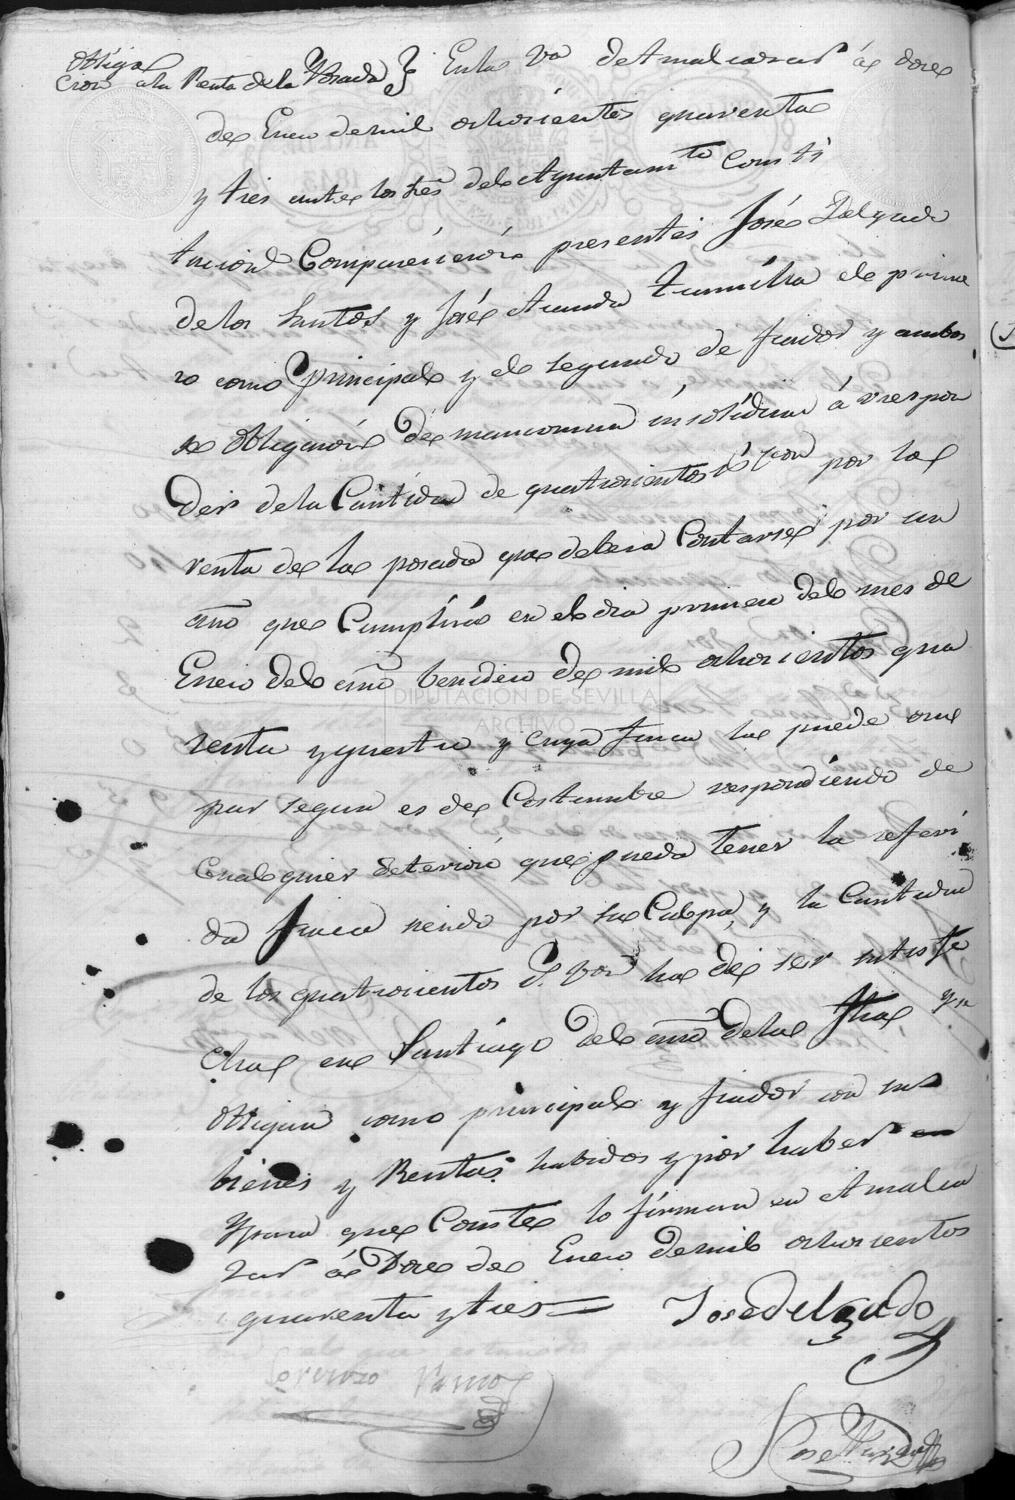 Obliga
cion a la Renta de la Posada } En la Va de Almadenar á doce
de Enero de mil ochocientos quarenta
y tres ante los Sres del Ayuntamto Consti
tucional Comparecieron presentes José Delgado
de los Santos y José Aranda familia el prime
ro como principal y el segundo de fiador y ambos
se obligaron de mancomun insolidum á respon
der de la Cantidad de quatrocientos rs von por la
renta de la posada que debera Contarse por un
año que Cumplirá en el dia primero del mes de
Enero del año benidero de mil ochocientos qua
renta y quatro y cuya finca la puede ocu
par segun es de Costumbre respondiendo de
Cualquier deterioro que pueda tener la referi
da finca siendo por su Culpa, y la Cantidad
de los quatrocientos rs. von ha de ser satisfe
cha en Santiago del año de la fha y se
obligan como principal y fiador con sus
bienes y Rentas habidos y por haber
Y para que Conste lo firman en
á Doce de Enero de mil ochocientos
quarenta y tres=
Jose delgado
Lorenzo Ramos
Jose
DIPUTACIÓN DE SEVILLA
ARCHIVO